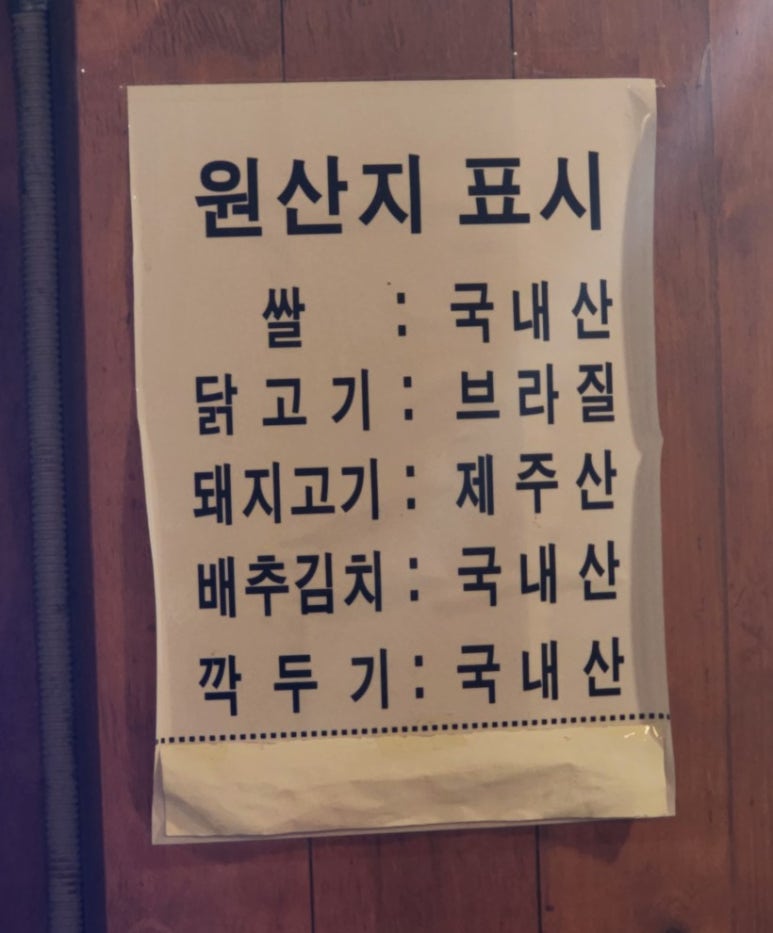 원산지 표시
쌀 : 국내산
닭고기 : 브라질
돼지고기 : 제주산
배추김치 : 국내산
깍두기 : 국내산